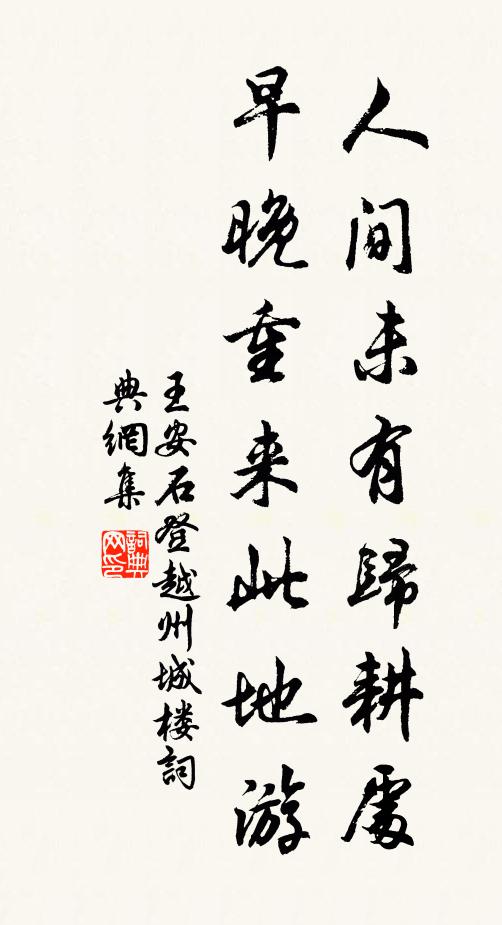 人间未有歸耕處
早晚重来此地游
王安石登越州城楼詞
典網集
詞典
网印